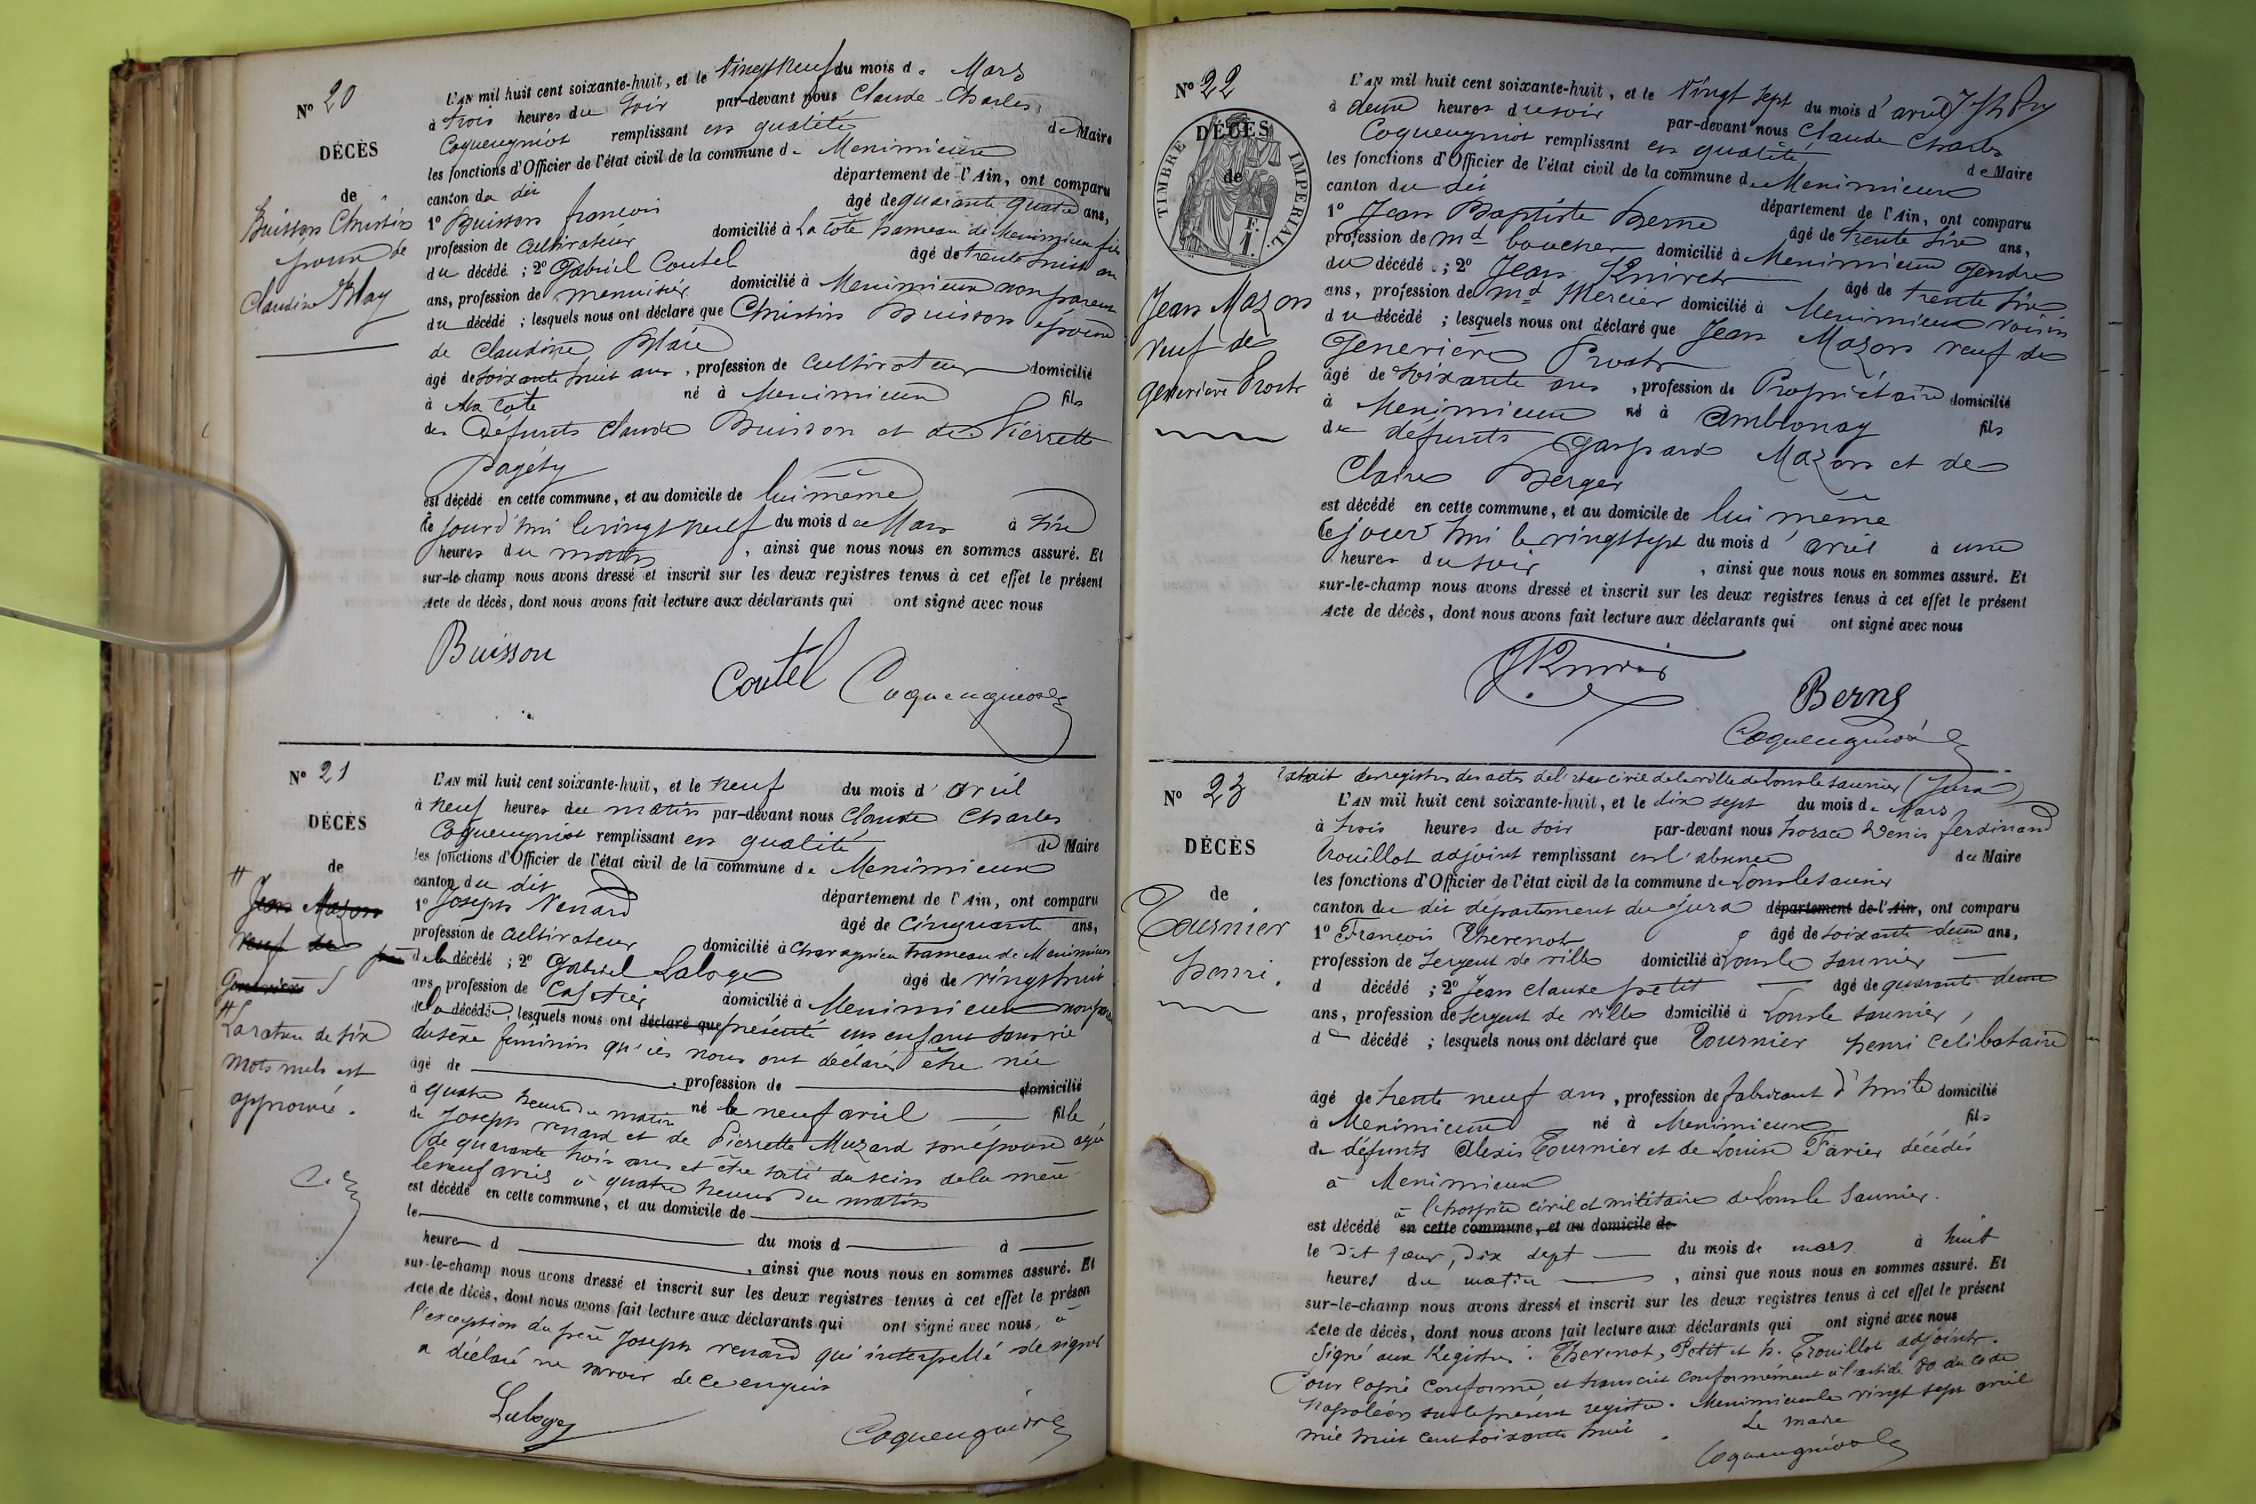 Nº 20
DÉCÈS
de
Buisson Christin
époux de
Claudine Blay
L'AN mil huit cent soixante-huit, et le vingt neuf du mois de Mars
à trois heures du soir par-devant nous Claude Charles
Coqueugniot remplissant en qualité de Maire
les fonctions d'Officier de l'état civil de la commune de Meximieux
canton du dit département de l'Ain, ont comparu
1º Buisson françois âgé de quarante quatre ans,
profession de cultivateur domicilié à La Côte hameau de Meximieux fils
du décédé ; 2º Gabriel Coutel âgé de trente huit
ans, profession de menuisier domicilié à Meximieux non parent
du décédé ; lesquels nous ont déclaré que Christin Buisson époux
de Claudine Blay
âgé de soixante huit ans, profession de cultivateur domicilié
à la Côte né à Meximieux fils
des défunts Claude Buisson et de Pierrette
Pagéty
est décédé en cette commune, et au domicile de lui même
ce jourd'hui le vingt neuf du mois de Mars à six
heures du matin, ainsi que nous nous en sommes assuré. Et
sur-le-champ nous avons dressé et inscrit sur les deux registres tenus à cet effet le présent
Acte de décès, dont nous avons fait lecture aux déclarants qui ont signé avec nous
Buisson
Coutel Coqueugniot
Nº 21
DÉCÈS
de
Jean Mazon
veuf de
Genevieve
La rature de six
mots nuls est
approuvé.
L'AN mil huit cent soixante-huit, et le neuf du mois d'avril
à neuf heures du matin par-devant nous Claude Charles
Coqueugniot remplissant en qualité de Maire
les fonctions d'Officier de l'état civil de la commune de Meximieux
canton du dit département de l'Ain, ont comparu
1º Joseph Renard âgé de cinquante ans,
profession de cultivateur domicilié à Charagnieu hameau de Meximieux père
de la décédé ; 2º Gabriel Laloge âgé de vingt huit
ans, profession de Cafetier domicilié à Meximieux non parent
de la décédé, lesquels nous ont déclaré que présenté un enfant sans vie
du sexe féminin qu'ils nous ont déclaré être née
âgé de , profession de domicilié
à quatre heures du matin né le neuf avril fille
de Joseph renard et de Pierrette Muzard son épouse agée
de quarante trois ans et être sorti du sein de la mère
le neuf avril à quatre heures du matin
est décédé en cette commune, et au domicile de
le
heure d du mois d à
, ainsi que nous nous en sommes assuré. Et
sur-le-champ nous avons dressé et inscrit sur les deux registres tenus à cet effet le présent
Acte de décès, dont nous avons fait lecture aux déclarants qui ont signé avec nous, à
l'exception du père Joseph renard qui interpellé de signer
a déclaré ne savoir de ce enquis
Laloge
Coqueugniot
Nº 22
TIMBRE IMPÉRIAL
F. 1.
DÉCÈS
de
Jean Mazon
veuf de
Genevieve Prost
L'AN mil huit cent soixante-huit, et le vingt sept du mois d'avril
à deux heures du soir par-devant nous Claude Charles
Coqueugniot remplissant en qualité de Maire
les fonctions d'Officier de l'état civil de la commune de Meximieux
canton du dit département de l'Ain, ont comparu
1º Jean Baptiste Berne âgé de trente six ans,
profession de md boucher domicilié à Meximieux gendre
du décédé ; 2º Jean âgé de trente six
ans, profession de md Mercier domicilié à Meximieux voisin
du décédé ; lesquels nous ont déclaré que Jean Mazon veuf de
Genevieve Prost
âgé de soixante ans, profession de Propriétaire domicilié
à Meximieux né à Ambronay fils
de défunts Gaspard Mazon et de
Claire Berger
est décédé en cette commune, et au domicile de lui même
ce jourd'hui le vingt sept du mois d'avril à une
heures du soir, ainsi que nous nous en sommes assuré. Et
sur-le-champ nous avons dressé et inscrit sur les deux registres tenus à cet effet le présent
Acte de décès, dont nous avons fait lecture aux déclarants qui ont signé avec nous
Berne
Coqueugniot
Extrait des registres des actes de l'état civil de la ville de Lons le Saunier (Jura)
Nº 23
DÉCÈS
de
Tournier
henri.
L'AN mil huit cent soixante-huit, et le dix sept du mois de Mars
à trois heures du soir par-devant nous horace Denis ferdinand
Trouillot adjoint remplissant en l'absence du Maire
les fonctions d'Officier de l'état civil de la commune de Lons le Saunier
canton du dit département du Jura département de l'Ain, ont comparu
1º François Thevenot âgé de soixante deux ans,
profession de sergent de ville domicilié à Lons le saunier
d décédé ; 2º Jean Claude petit âgé de quarante deux
ans, profession de sergent de ville domicilié à Lons le saunier,
d décédé ; lesquels nous ont déclaré que Tournier henri célibataire
âgé de trente neuf ans, profession de fabricant d'huile domicilié
à Meximieux né à Meximieux fils
de défunts Alexis Tournier et de Louise Favier décédés
à Meximieux
à l'hospice civil et militaire de Lons le Saunier.
est décédé en cette commune, et au domicile de
le dit jour, dix sept du mois de mars à huit
heures du matin, ainsi que nous nous en sommes assuré. Et
sur-le-champ nous avons dressé et inscrit sur les deux registres tenus à cet effet le présent
Acte de décès, dont nous avons fait lecture aux déclarants qui ont signé avec nous
Signé aux Registres : Thevenot, Petit et h. Trouillot adjoint.
Pour copie conforme et transcrit conformément à l'article 80 du code
Napoléon sur le présent registre. Meximieux le vingt sept avril
mil huit cent soixante huit.
Le maire
Coqueugniot